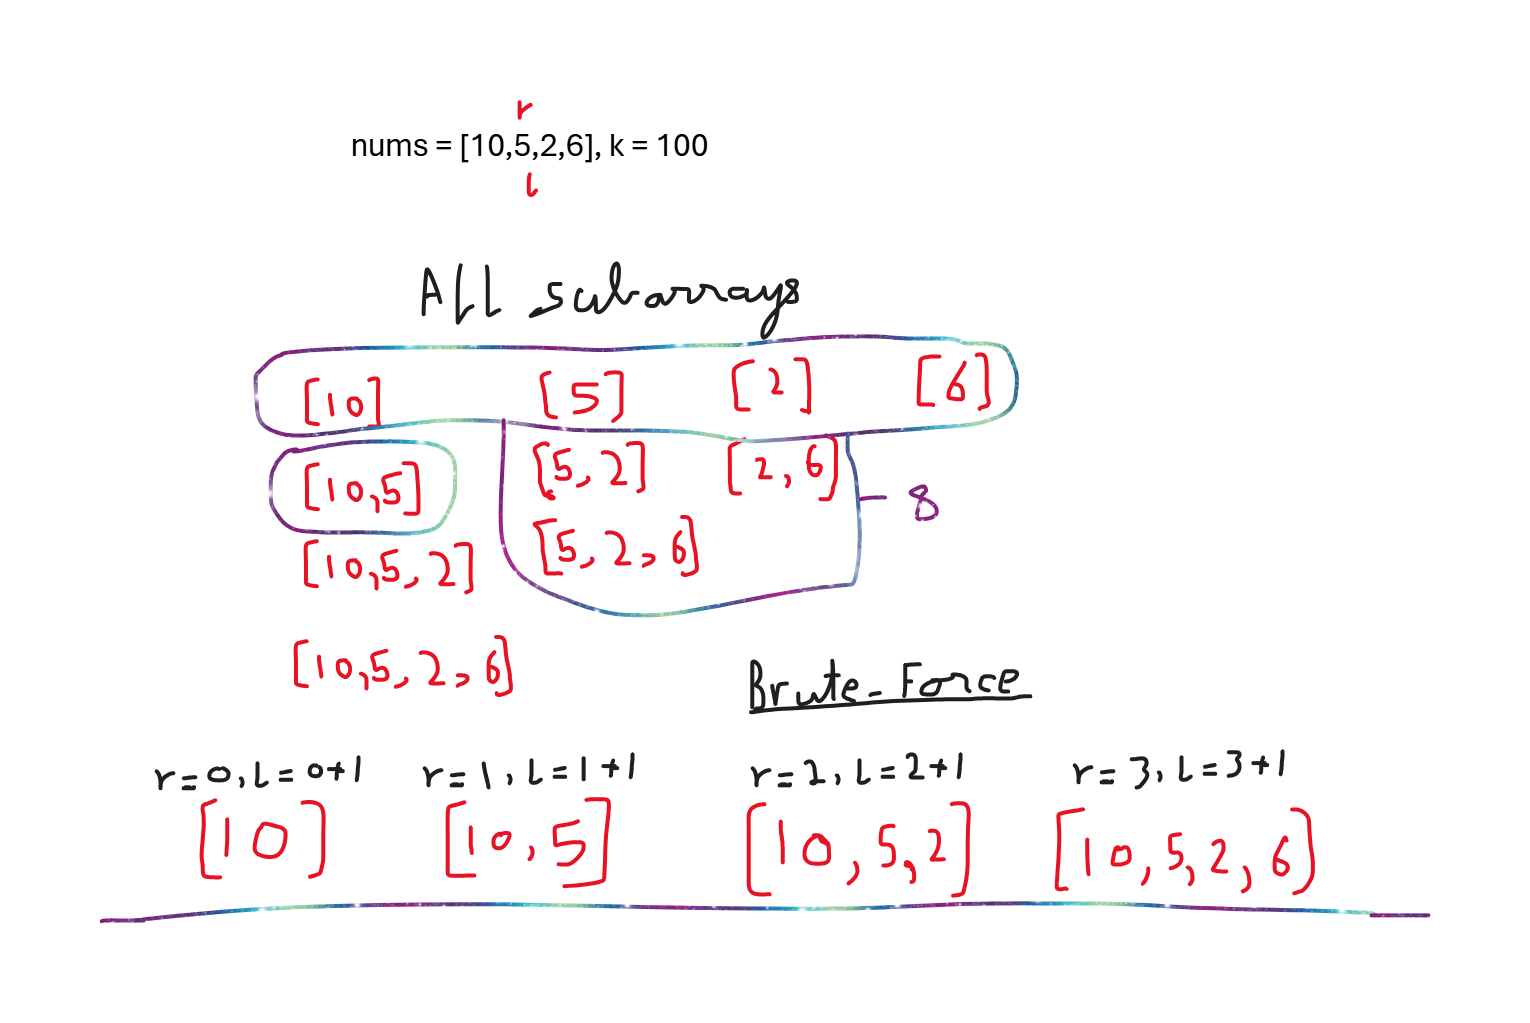 r
nums = [10,5,2,6], k = 100
l
All subarrays
[10] [5] [2] [6]
[10,5] [5,2] [2,6] - 8
[10,5,2] [5,2,6]
[10,5,2,6]
Brute-Force
r=0,l=0+1 r=1,l=1+1 r=2,l=2+1 r=3,l=3+1
[10] [10,5] [10,5,2] [10,5,2,6]